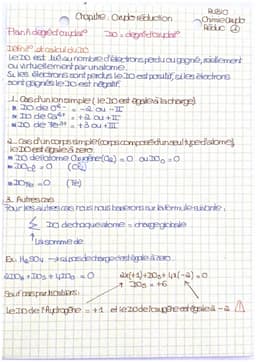 Chapitre : Oxydo réduction
Chimie Oxydo
Réduc
Plan A degré d'oxydat° DO = degré d'oxydat°
Définit° et calcul du DO
Le DO est lié au nombre d'électrons perdu ou gagné, réellement
ou virtuellement par un atome.
Si les électrons sont perdus le DO est positif, si les électrons
sont gagnés le DO est négatif.
1. Cas d'un ion simple (le DO est égale à la charge)
DO de O²⁻ = -2 ou -II
DO de Ca²⁺ = +2 ou +II
DO de Fe³⁺ = +3 ou +III
2. Cas d'un corps simple (corps composé d'un seul type d'atome),
le DO est égale à zéro.
DO de l'atome Oxygène (O₂) = 0 ou DO₀ = 0
= 0
= 0 (Fe)
3. Autres cas
Pour les autres cas nous nous baserons sur la formule suivante :
Σ DO de chaque atome = charge globale
la somme de
Ex : H₂SO₄ → pas de charge donc égale à zéro
+ DOs + 4DO₀ = 0
2x(+1)+DOs+4x(-2) = 0
DOs = +6
Sauf cas particuliers :
Le DO de l'hydrogène = +1 et le DO de l'oxygène est égale à -2